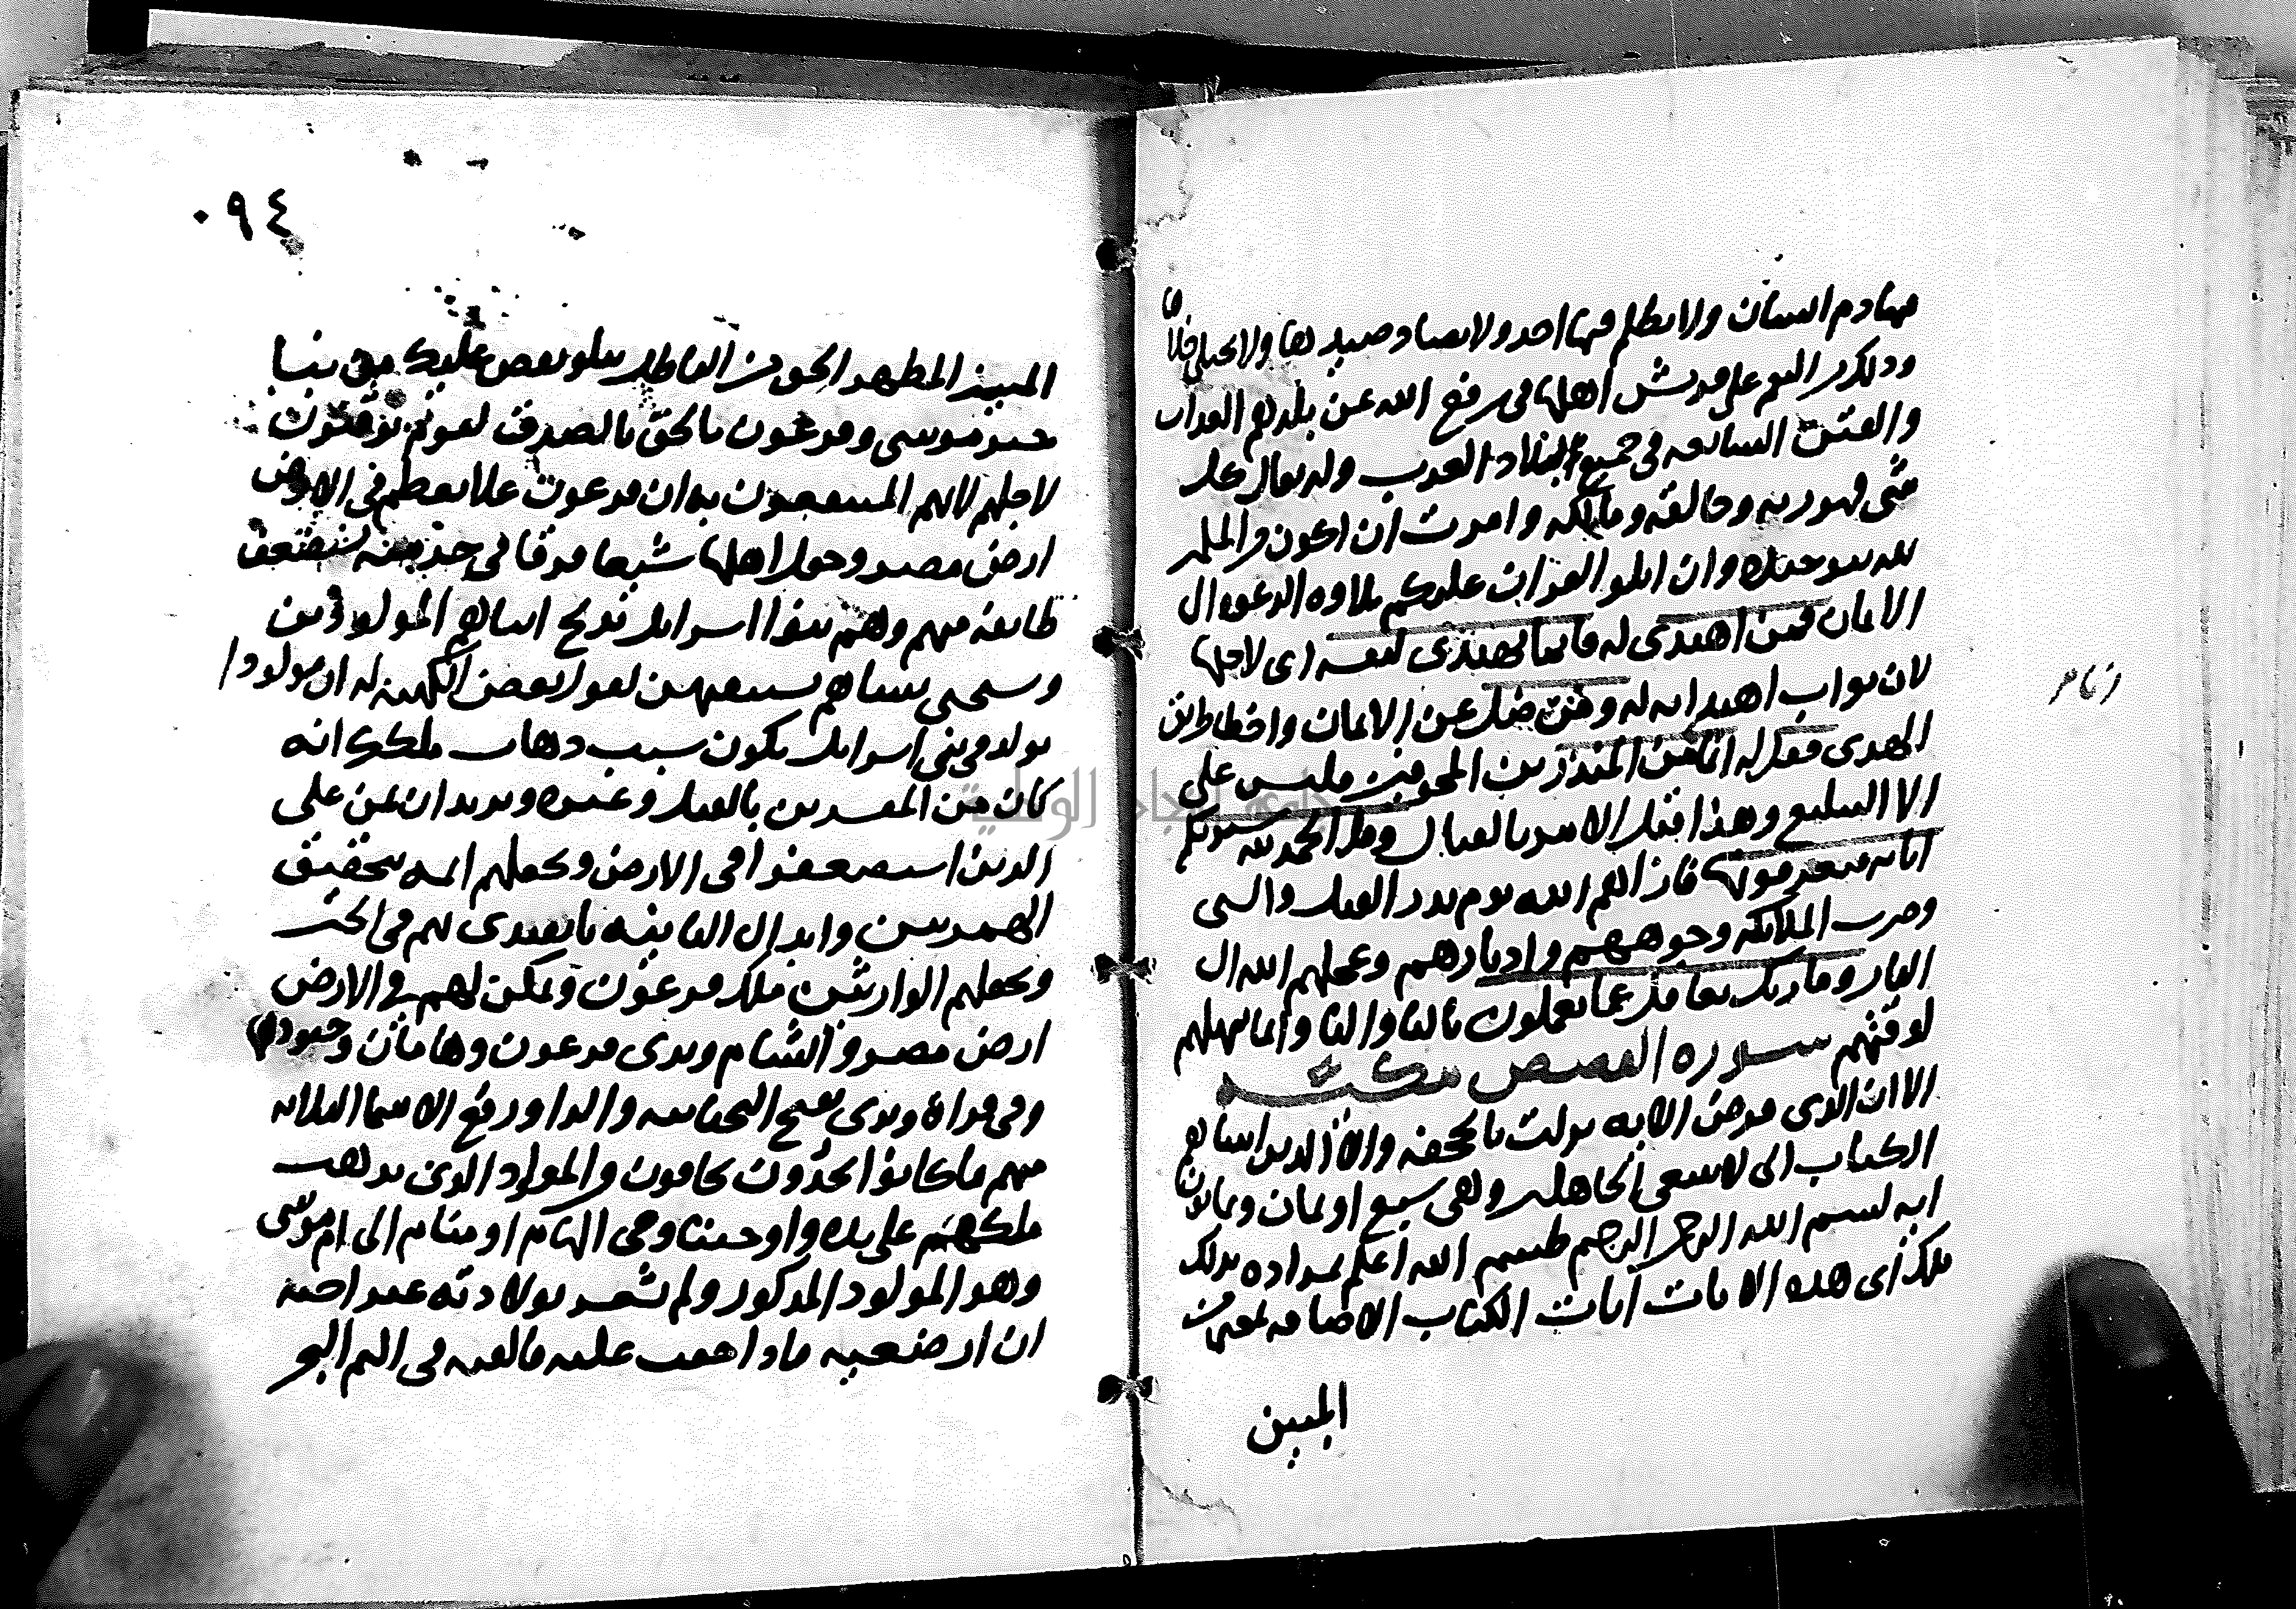 فيها دم انسان ولا يظلم فيها احد ولا يصاد صيدها ولا يختلى خلاها
وذلك من النعم على قريش اهلها في رفع الله عن بلدهم العذاب
والفتن الشائعة في جميع بلاد العرب وله تعالى كل
شيء فهو ربه وخالقه ومالكه وامرت ان اكون من المسلمين
لله بتوحيده وان اتلو القران عليكم تلاوة الدعوى الى
الايمان فمن اهتدى له فانما يهتدي لنفسه اي لاجلها
لان ثواب اهتدائه له ومن ضل عن الايمان واخطا طريق
الهدى فقل له انما من المنذرين المخوفين فليس علي
الا التبليغ وهذا قبل الامر بالقتال وقل الحمد لله سيريكم
اياته فتعرفونها فاراهم الله يوم بدر القتل والسبي
وضرب الملائكة وجوههم وادبارهم وعجلهم الله الى
النار وما ربك بغافل عما يعملون بالتاء والياء وانما يمهلهم
لوقتهم سورة القصص مكية
الا ان الذي فرض الاية نزلت بالجحفة والا الذين اتيناهم
الكتاب الى لا نبتغي الجاهلين وهي سبع او ثمان وثمانون
اية بسم الله الرحمن الرحيم طسم الله اعلم بمراده بذلك
تلك اي هذه الايات ايات الكتاب الاضافة بمعنى من
المبين
٠٩٤
المبين المظهر الحق من الباطل نتلو نقص عليك من نبا
خبر موسى وفرعون بالحق بالصدق لقوم يؤمنون
لاجلهم لانهم المنتفعون به ان فرعون علا تعظم في الارض
ارض مصر وجعل اهلها شيعا فرقا في خدمته يستضعف
طائفة منهم وهم بنوا اسرائيل يذبح ابناءهم المولودين
ويستحيي نساءهم يستبقيهن لقول بعض الكهنة له ان مولودا
يولد في بني اسرائيل يكون سبب ذهاب ملكك انه
كان من المفسدين بالقتل وغيره ونريد ان نمن على
الذين استضعفوا في الارض ونجعلهم ائمة بتحقيق
الهمزتين وابدال الثانية ياء يقتدى بهم في الخير
ونجعلهم الوارثين ملك فرعون ونمكن لهم في الارض
ارض مصر والشام ونري فرعون وهامان وجنودهما
وفي قراءة ويرى بفتح التحتانية والراء ورفع الاسماء الثلاثة
منهم ما كانوا يحذرون يخافون من المولود الذي يذهب
ملكهم على يده واوحينا وحي الهام او منام الى ام موسى
وهو المولود المذكور ولم يشعر بولادته غير اخته
ان ارضعيه فاذا خفت عليه فالقيه في اليم البحر